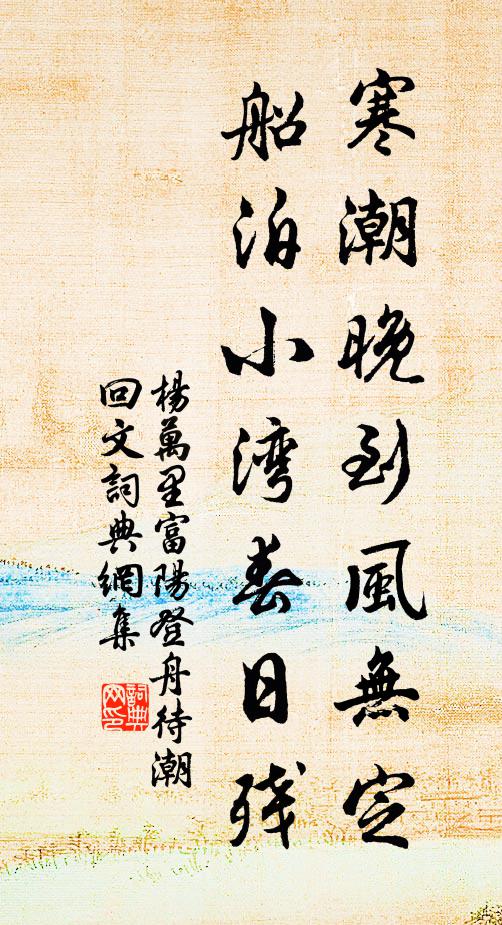 寒潮晚到風無定
船泊小湾春日残
楊萬里富陽登舟待潮
回文詞典網集
詞典网印